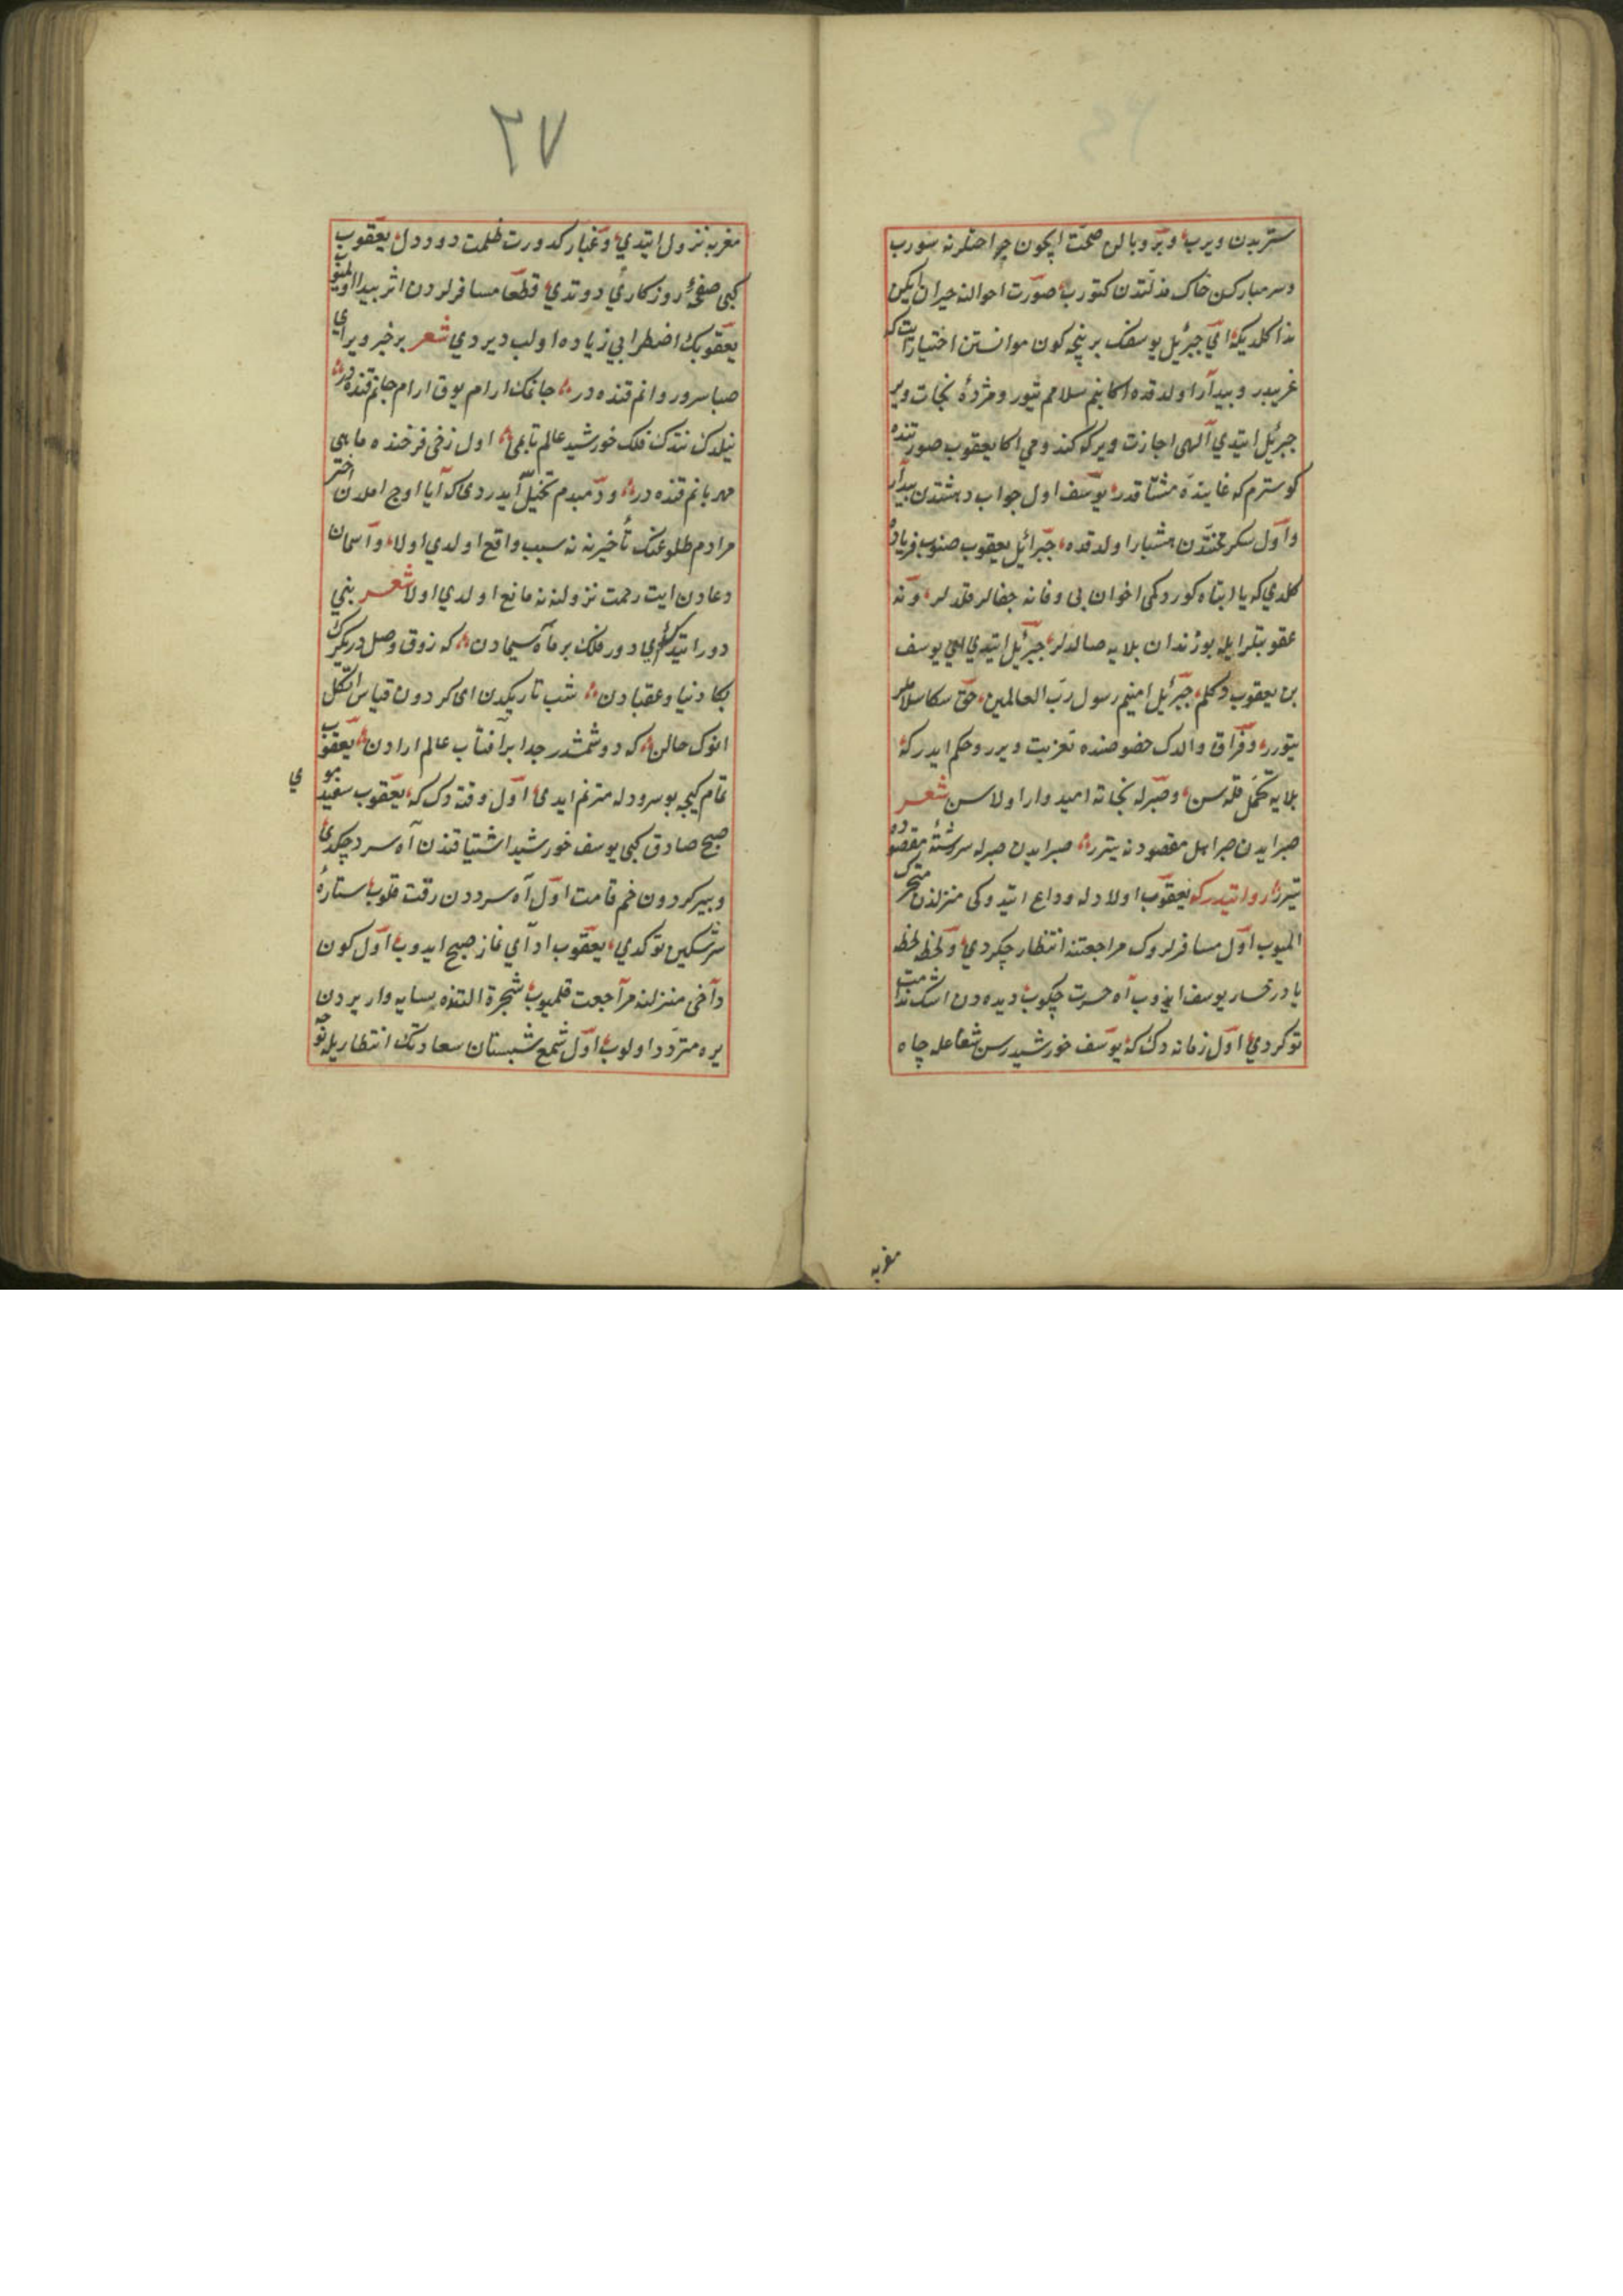 ستربدن ويرب و پر و بالن صحت ايچون جراحتلرنه سورب
وسر مباركن خاك مذلتدن كتورب صورت احوالنه حيران ايكن
ندا كلديكه اي جبرئيل يوسفك بر نيچه كون موانستن اختيار ايت كه
غريبدر و بيدار اولدقده اكا بنم سلامم يتور و مژدهٔ نجات وير
جبرئيل ايتدي الهي اجازت ويركه كندومي اكا يعقوب صورتنده
كوسترم كه غايتده مشتاقدر يوسف اول خواب دهشتدن بيدار
و اول سكر محنتدن هشيار اولدقده جبرائيل يعقوب صنوب فرياده
كلدي كه يا ابتاه كوردكمي اخوان بي وفا نه جفالر قلدلر و نه
عقوبتلر ايله بو زندان بلايه صالدلر جبرئيل ايتدي اي يوسف
بن يعقوب دكلم جبرئيل امينم رسول رب العالمين حق سكا سلام
يتورر و فراق والدك خصوصنده تعزيت ويرر و حكم ايدركه
بلايه تحمل قله سن و صبرله نجاته اميدوار اولاسن شعر
صبر ايدن صبر ايل مقصودنه يتر صبر ايدن صبرله سررشتهٔ مقصوده
يتر روايتدركه يعقوب اولادله وداع ايتدوكي منزلدن متحرك
المیوب اول مسافرلروك مراجعتنه انتظار چكردي و لحظه لحظه
ياد رخسار يوسف ايدوب آه حسرت چكوب ديده دن اشك ندامت
توكردي اول زمانه دك كه يوسف خورشيد رسن شعاعله چاه
مغربه
٣٧
مغربه نزول ايتدي و غبار كدورت ظلمت دود دل يعقوب
كبي صفحهٔ روزكاري دوتدي قطعا مسافرلردن اثر بيدا اولميوب
يعقوبك اضطرابي زياده اولب ديردي شعر بر خبر وير اي
صبا سرو روانم قنده در جانمك ارام يوق ارام جانم قنده در
نيلدك نتدك فلك خورشيد عالم تابمي اول رخي فرخنده ماهي
مهربانم قنده در و دمبدم تخيل ايدردي كه آيا اوج املدن اختر
مرادم طلوعنك تأخيرنه نه سبب واقع اولدي اولا و آسمان
دعادن ايت رحمت نزولنه نه مانع اولدي اولا شعر بني
دور ايتدك اي دور فلك بر ماه سيمادن كه ذوق وصلدر يكرك
بكا دنيا و عقبادن شب تاريكدن اي كردون قياس اتكل
انوك حالن كه دوشمشدر جدا بر آفتاب عالم ارادن يعقوب
تمام كيجه بو سرودله مترنم ايدي اول وقته دك كه يعقوب سفيد موي
صبح صادق كبي يوسف خورشيد اشتياقندن آه سرد چكدي
و پير كردون خم قامت اول آه سرددن رقت قلوب ستارهٔ
سرشكين توكدي يعقوب اداي نماز صبح ايدوب اول كون
داخي منزلنه مراجعت قلميوب شجرة التنده سايه وار يردن
يره متردد اولوب اول شمع شبستان سعادتك انتظاريله توجه